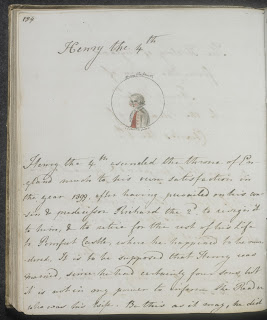 154
Henry the 4th
Henry the 4th ascended the throne of En-
gland much to his own satisfaction in
the year 1399, after having prevailed on his cou-
sin & predecessor Richard the 2d to resign it
to him, & to retire for the rest of his life
to Pomfret Castle, where he happened to be mur-
dered. It is to be supposed that Henry was
married, since he had certainly four sons, but
it is not in my power to inform the Reader
who was his Wife. Be this as it may, he did